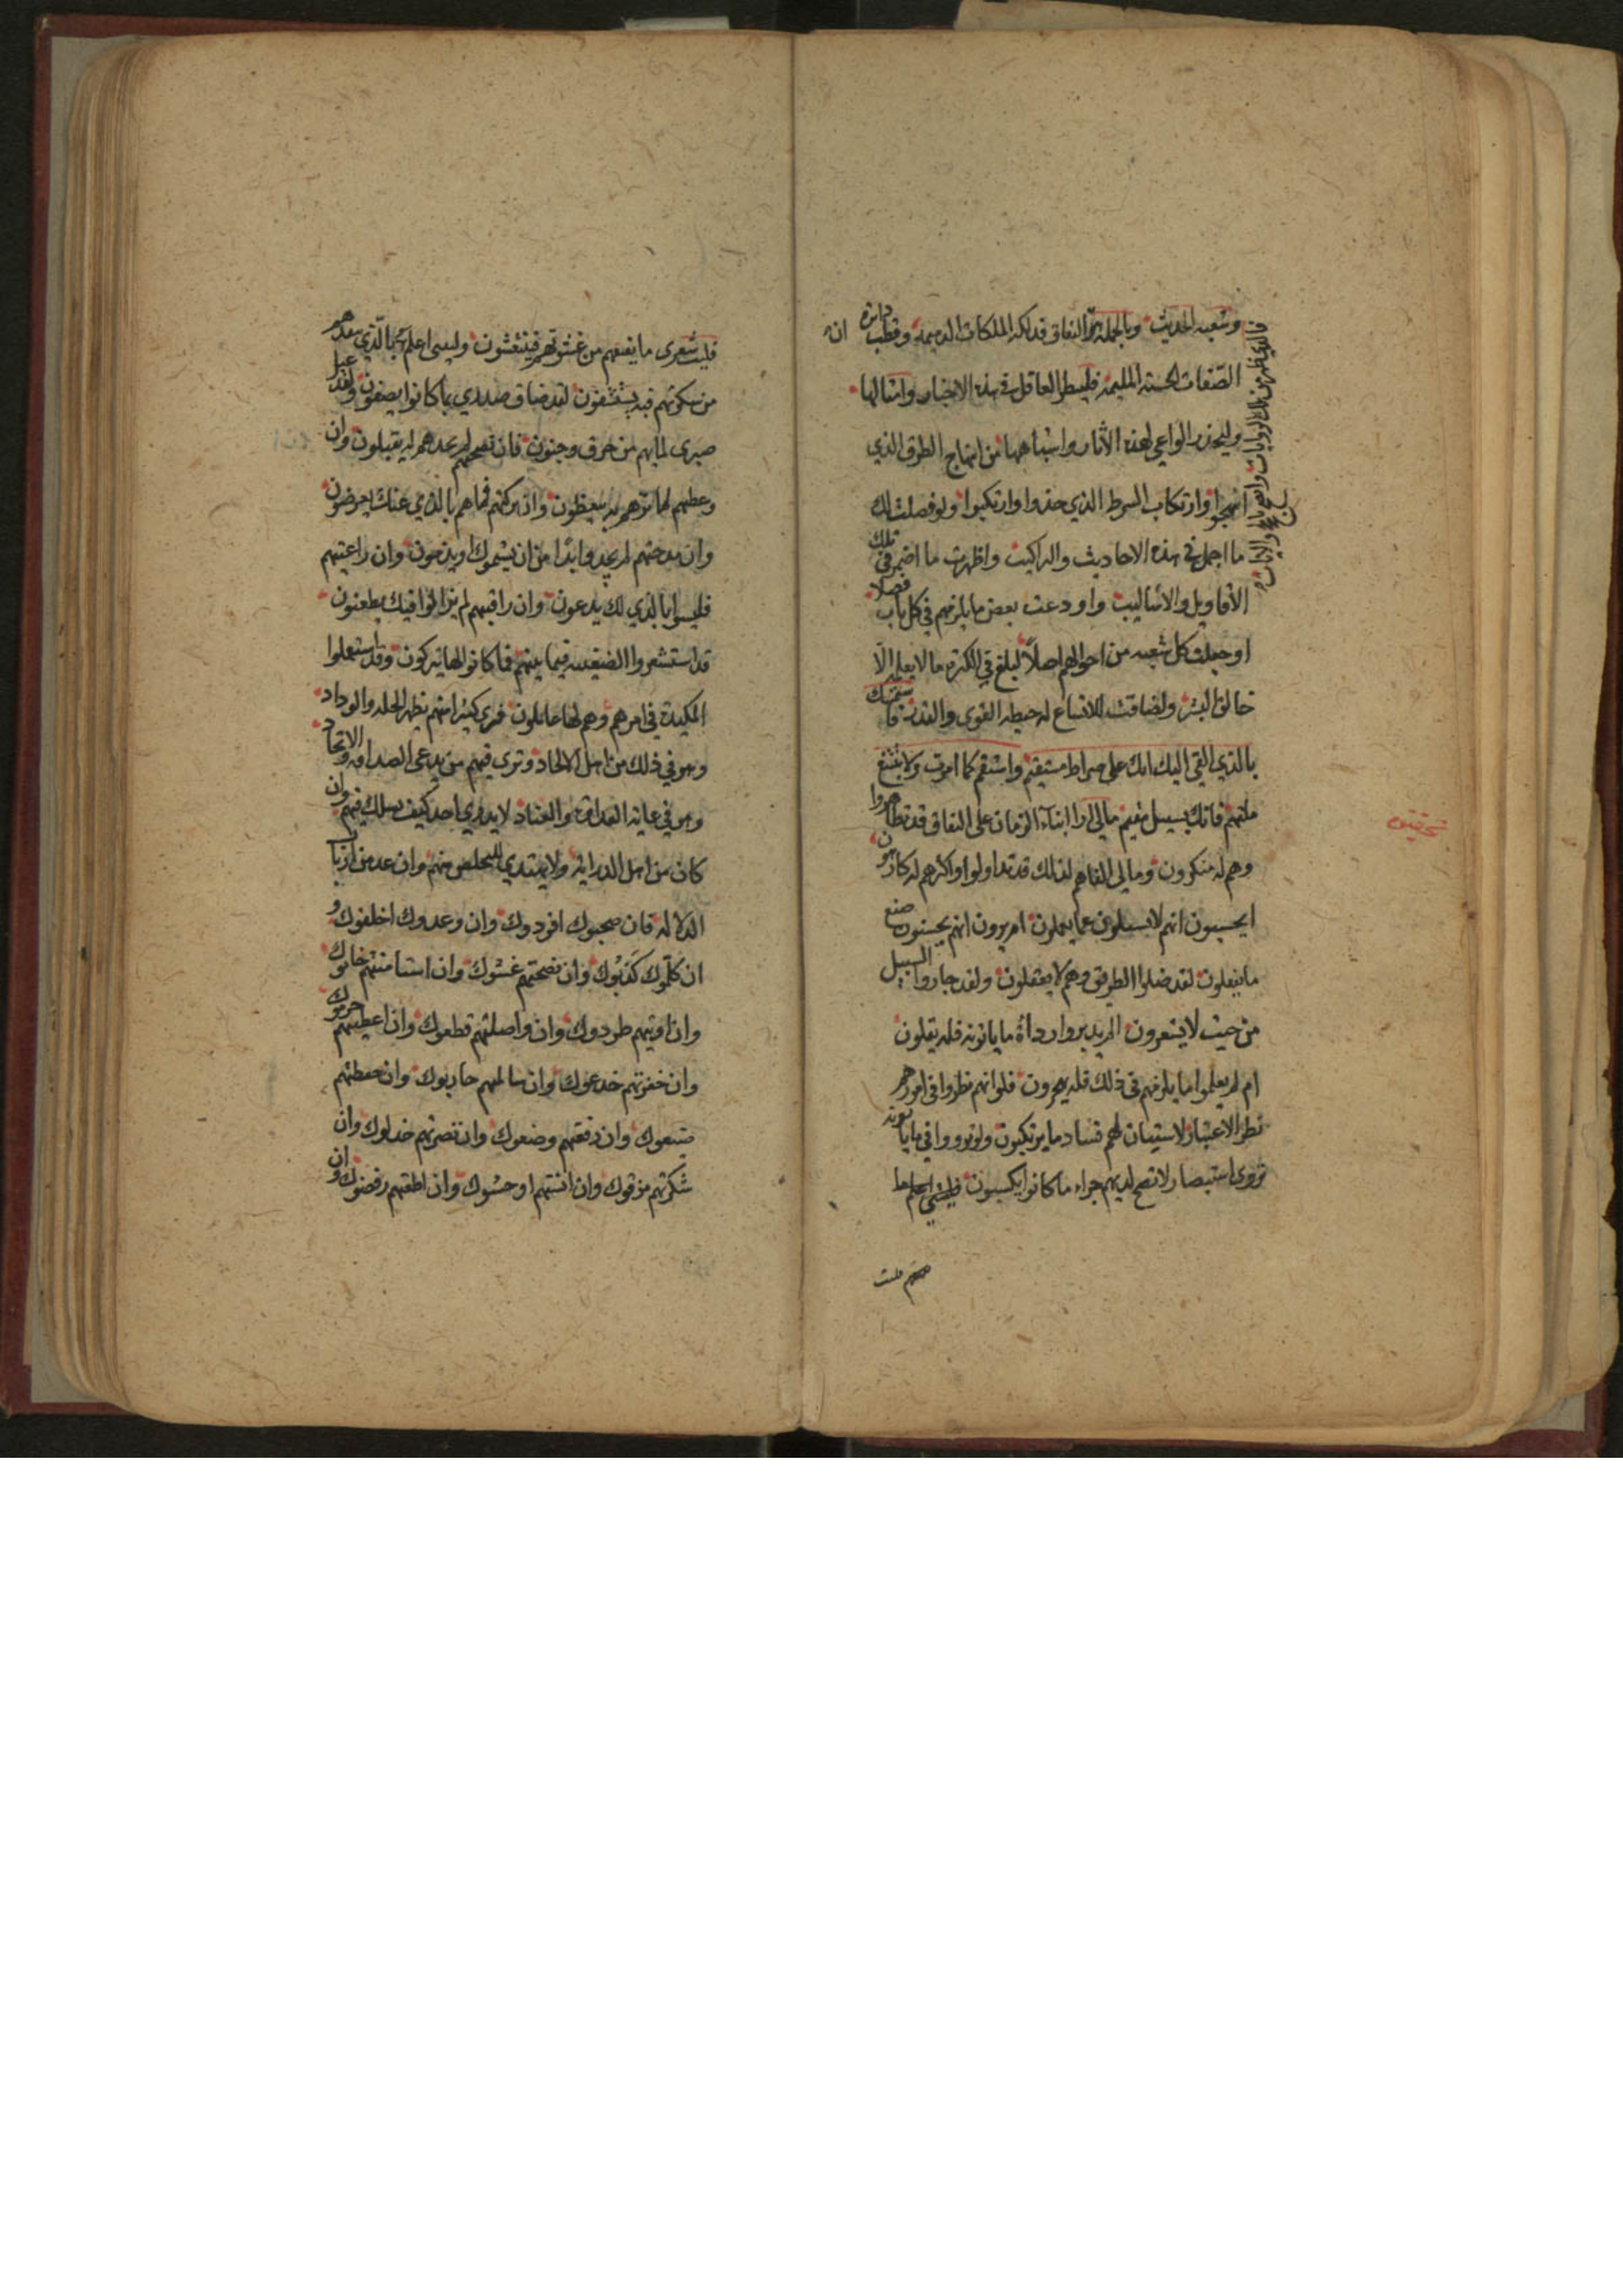 وشعبه الحديث وبالجملة ثم النفاق فذلكة الملكات الذميمة وقطب دائرة
الصفات الخسيسة المليمة فلينظر العاقل في هذه الاخبار وامثالها
وليحذر الواعي لهذه الآثار واشباهها من انتهاج الطرق الذي
انتهجوا وارتكاب السرط الذي حذوا وارتكبوا ولو فصلت لك
ما اجمل في هذه الاحاديث والتراكيب واظهرت ما اضمر في تلك
الأقاويل والاساليب واودعت بعض ما يلزمهم في كل باب فصلا
او جعلت كل شعبه من احوالهم اصلاً لبلغ في الكثرة ما لا يعلمه الّا
خالق البشر ولضاقت للاتساع له حيطة القوى والقدر فاستمسك
بالذي القي اليك انك على صراط مستقيم واستقم كما امرت ولا تتبع
ملتهم فانك بسبيل مقيم مالي ارا ابناء الزمان على النفاق قد تظاهروا
وهم له منكرون ومالي الفاهم لذلك قد تداولوا واكثرهم له كارهون
ايحسبون انهم لا يسئلون عما يعملون ام يرون انهم يحسنون صنع
ما يفعلون لقد ضلوا الطريق وهم لا يعقلون ولقد جاروا السبيل
من حيث لا يشعرون الم يدبروا رداءة ما ياتونه فلم يقلون
ام لم يعلموا ما يلزمهم في ذلك فلم يهجرون فلو انهم نظروا في امورهم
نظر الاعتبار لاستبان لهم فساد ما يرتكبون ولو تروا في ما ياتونه
تروي استبصار لاتضح لديهم جزاء ما كانوا يكسبون فليتني اعلم ما
فليت شعري ما يمنعهم من غشوتهم فينتشون وليتني اعلم بما الذي يبعدهم
من سكرتهم فيستفيقون لقد ضاق صدري بما كانوا يصفون ولقد عيل
صبري لما بهم من خرق وجنون فان نصحتهم لم تجدهم له يقبلون وان
وعظتهم لما ترهم به يتعظون وان بركتهم فما هم بالذي عنك يعرضون
وان مدحتهم لم يجدوا بدّا من ان يشتموك او يذمون وان راعيتهم
فليسوا بالذي لك يدعون وان راقبتهم لم يزالوا فيك يطعنون
قد استشعروا الضغينة فيما بينهم فما كانوا لها تيركون وقد استعملوا
المكيدة في امرهم وهم لها عاملون فترى كثيرا منهم يظهر الخلة والوداد
وهو في ذلك من اهل الالحاد وترى فيهم من يدعي الصداقة والاتحاد
وهو في غاية العداوة والعناد لا يدري احد كيف يسلك فيهم وان
كان من اهل الدراية ولا يهتدي للتخلص منهم وان عد من ارباب
الدلاله فان صحبوك افردوك وان وعدوك اخلفوك و
ان كلّموك كذبوك وان نصحتهم غشوك وان استامنتهم خانوك
وان اويتهم طردوك وان واصلتهم قطعوك وان اعطيتهم حرموك
وان خفرتهم خدعوك وان سالمتهم حاربوك وان حفظتهم
ضيعوك وان رفعتهم وضعوك وان نصرتهم خذلوك وان
شكرتهم مزقوك وان انستهم اوحشوك وان اطعتهم رفضوك وان